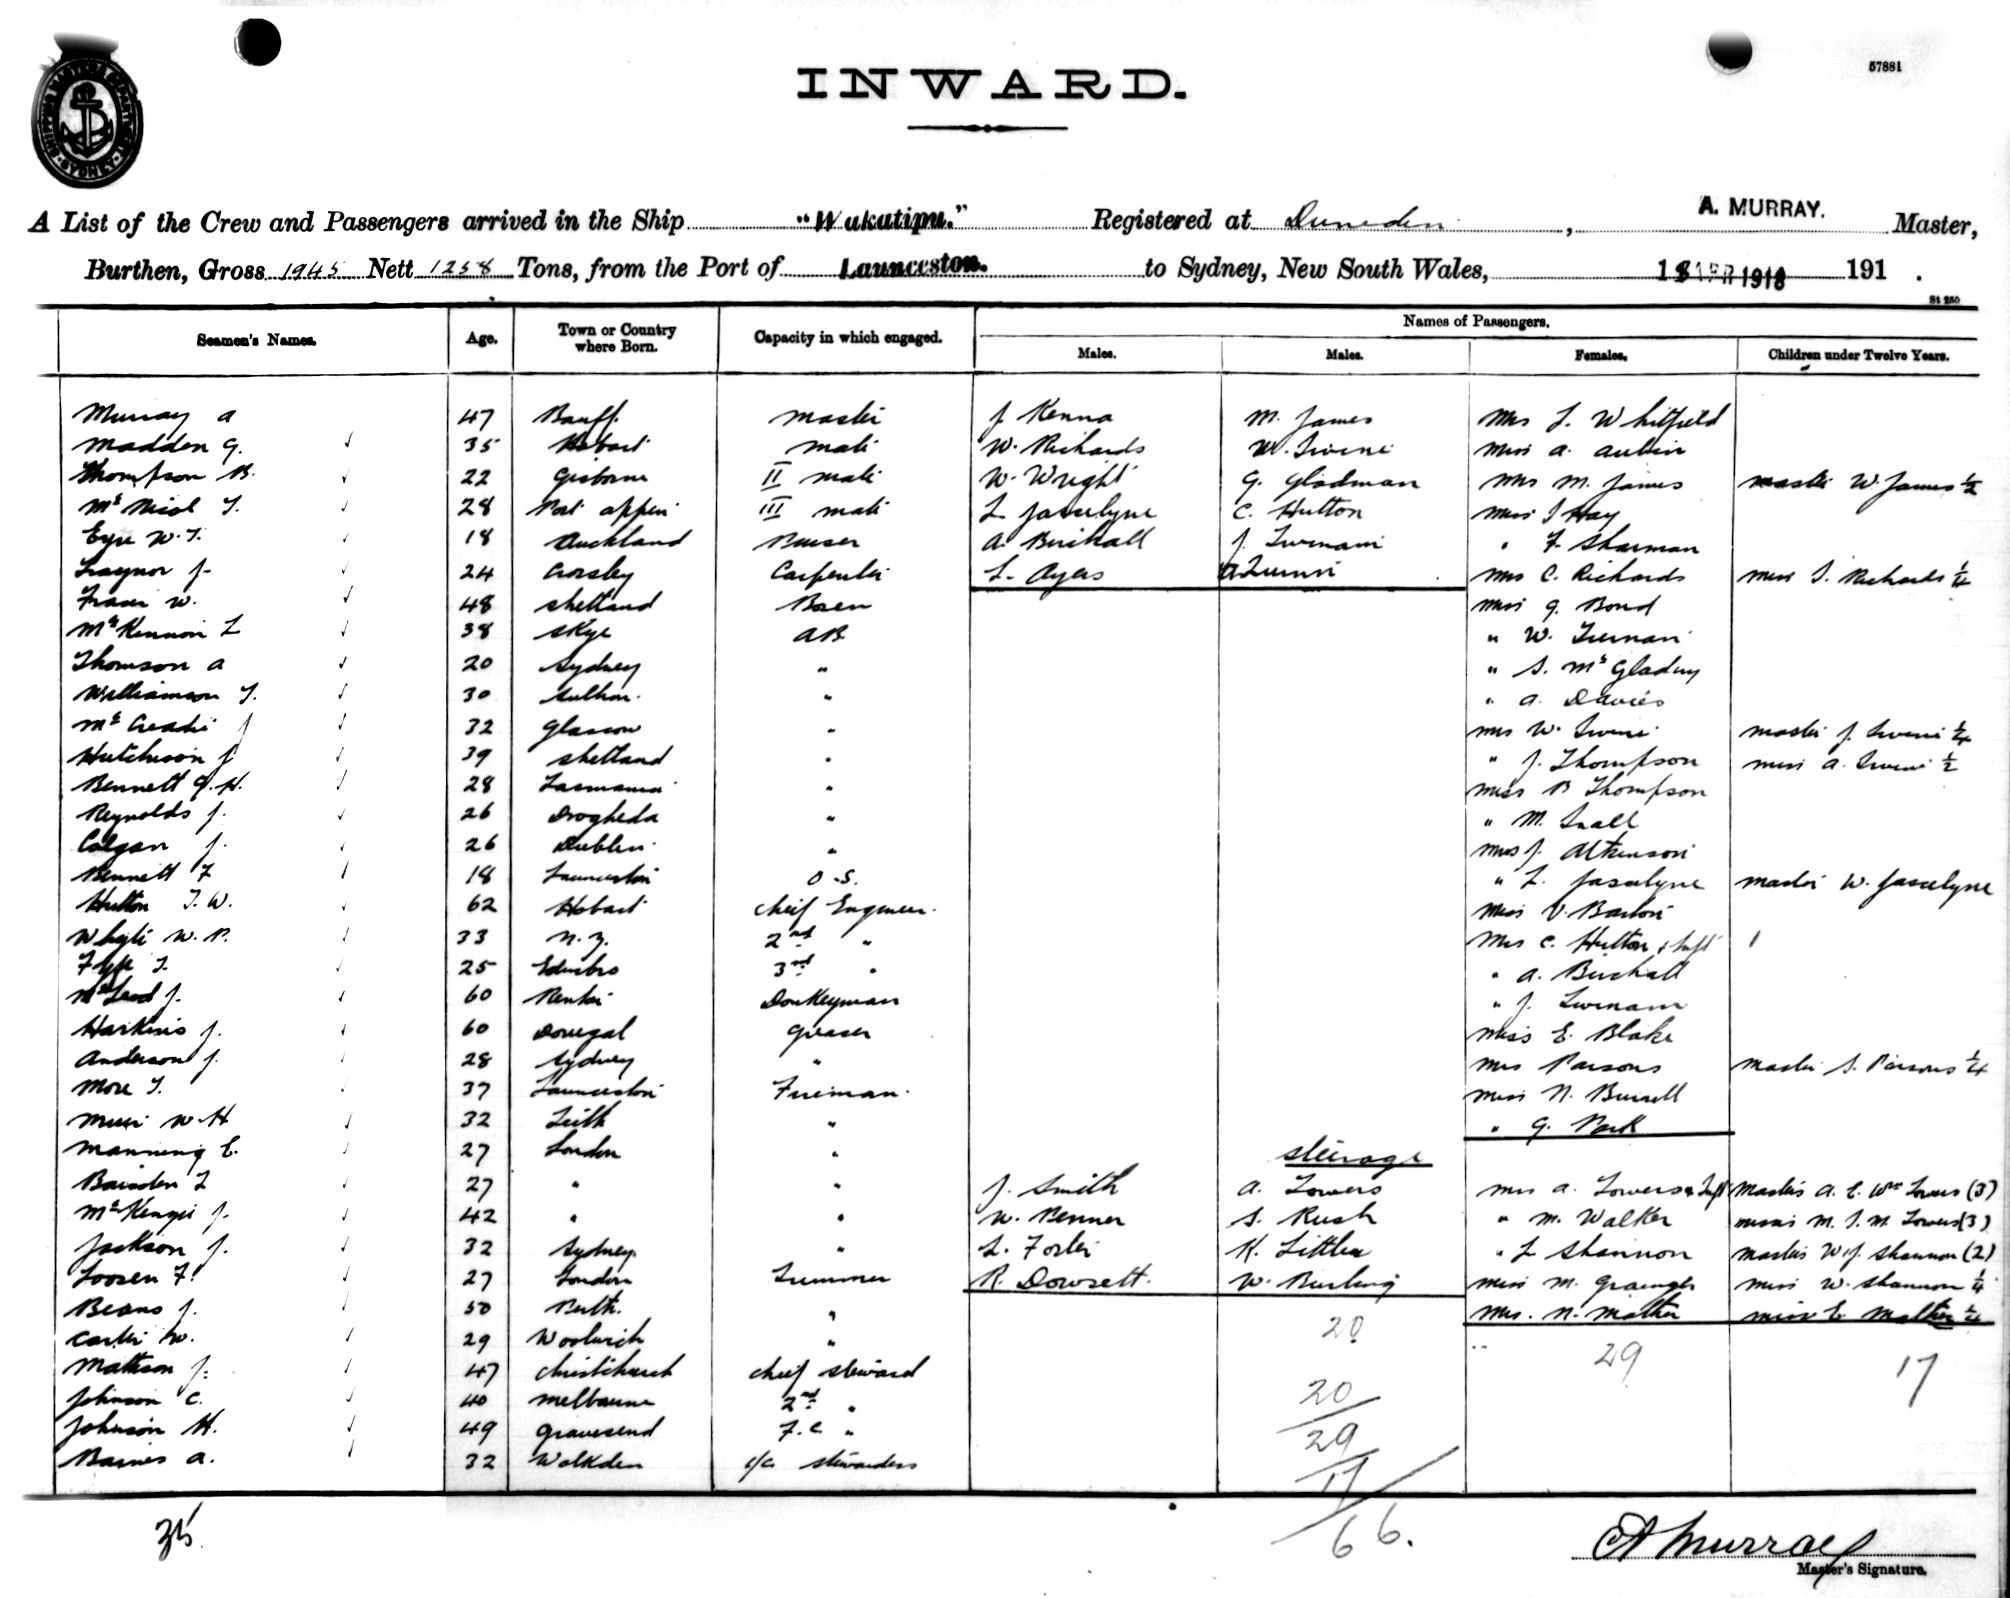 57881
SHIPPING MASTERS DEPARTMENT SYDNEY
INWARD.
A List of the Crew and Passengers arrived in the Ship "Wakatipu." Registered at Dunedin, A. MURRAY. Master,
Burthen, Gross 1945 Nett 1258 Tons, from the Port of Launceston. to Sydney, New South Wales, 1918 191 .
St 250
Seamen's Names. Age. Town or Country where Born. Capacity in which engaged. Names of Passengers.
Males. Males. Females. Children under Twelve Years.
Murray A 47 Banff. Master J Kenna M. James Mrs L. Whitfield
Madden G. 35 Hobart Mate W. Richards Miss A. Aubin
Thompson B. 22 Gisborne II Mate W. Wright G. Gladman Mrs M. James Master W. James ½
McNicol T. 28 Port Appin III Mate L Joscelyne C. Hutton Miss I Hay
Eyre W.T. 18 Auckland Purser A. Birchall J. " F. Sharman
Traynor J. 24 Crosby Carpenter L. Ayers Mrs C. Richards Miss I. Richards
Fraser W. 48 Shetland Bosn Miss G. Bond
McKinnon L 38 Skye AB " W.
Thomson A 20 Sydney " " S.
Williamson T. 30 " " A. Davies
McCreadie J 32 Glasgow " Mrs W. Master J.
Hutchison J 39 Shetland " " J. Thompson Miss A.
Bennett G.H. 28 Tasmania " Miss B Thompson
Reynolds J. 26 Drogheda " " M.
Colgan J. 26 Dublin " Mrs J. Atkinson
Bennett F 18 Launceston O.S. " L. Joscelyne Master W. Joscelyne
Hutton T.W. 62 Hobart Cheif Engineer. Miss V. Barton
Whyte W.P. 33 N.Z. 2nd " Mrs C. Hutton & Inft 1
Fyfe T. 25 Edinbro 3rd " " A. Birchall
McLeod J. 60 Donkeyman " J.
Harkins J. 60 Donegal Greaser Miss E. Blake
Anderson J. 28 Sydney " Mrs Parsons Master S. Parsons ¼
More T. 37 Launceston Fireman. Miss N. Burrell
Muir W.H 32 Leith " " G. Park
Manning E. 27 London " Steerage
27 " " J. Smith A. Towers Mrs A. Towers & Inft Masters A. E. Wm Towers (3)
McKenzie J. 42 " " W. Benner S. Rush " M. Walker Misses M. I. M. Towers (3)
Jackson J. 32 Sydney " L. Foster K. Littler " L Shannon Masters W.J. Shannon (2)
Loosen F. 27 London Trimmer R. Dowsett. W. Burling Miss M. Grainger Miss W. Shannon ¼
Beans J. 50 Perth. " Mrs. N. Mather Miss E Mather ¼
Carter W. 29 Woolwich " 20 29 17
Mattson J. 47 Christchurch Cheif Steward
Johnson C. 40 Melbourne 2nd " 20
Johnson H. 49 Gravesend F.C. " 29
Barnes A. 32 Walkden Stewardess 17
35 66.
A Murray
Master's Signature.